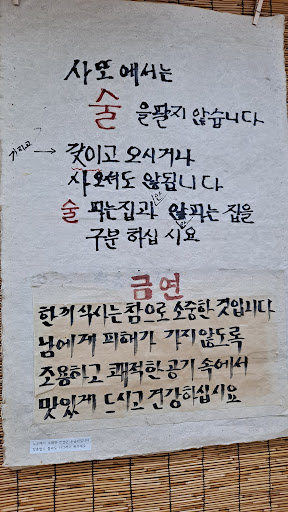 사또에서는
술을팔지 않습니다
가지고 → 갖이고 오시거나
사오셔도 않됩니다
안
술 파는집과 않파는 집을
구분 하십시요
금연
한끼식사는참으로소중한것입니다
남에게 피해가 가지않도록
조용하고 쾌적한공기 속에서
맛있게 드시고건강하십시요